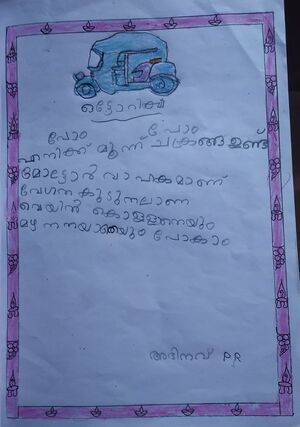 ഒട്ടോറിക്ഷ
പോം പോം
എനിക്ക് മൂന്ന് ചക്രങ്ങളുണ്ട്
മോട്ടോർ വാഹകമാണ്
വേഗന കൂടുനലാണ
വെയിൽ കൊള്ളതെയും
മഴ നനയാതെയും പോകാം
അഭിനവ് P.R